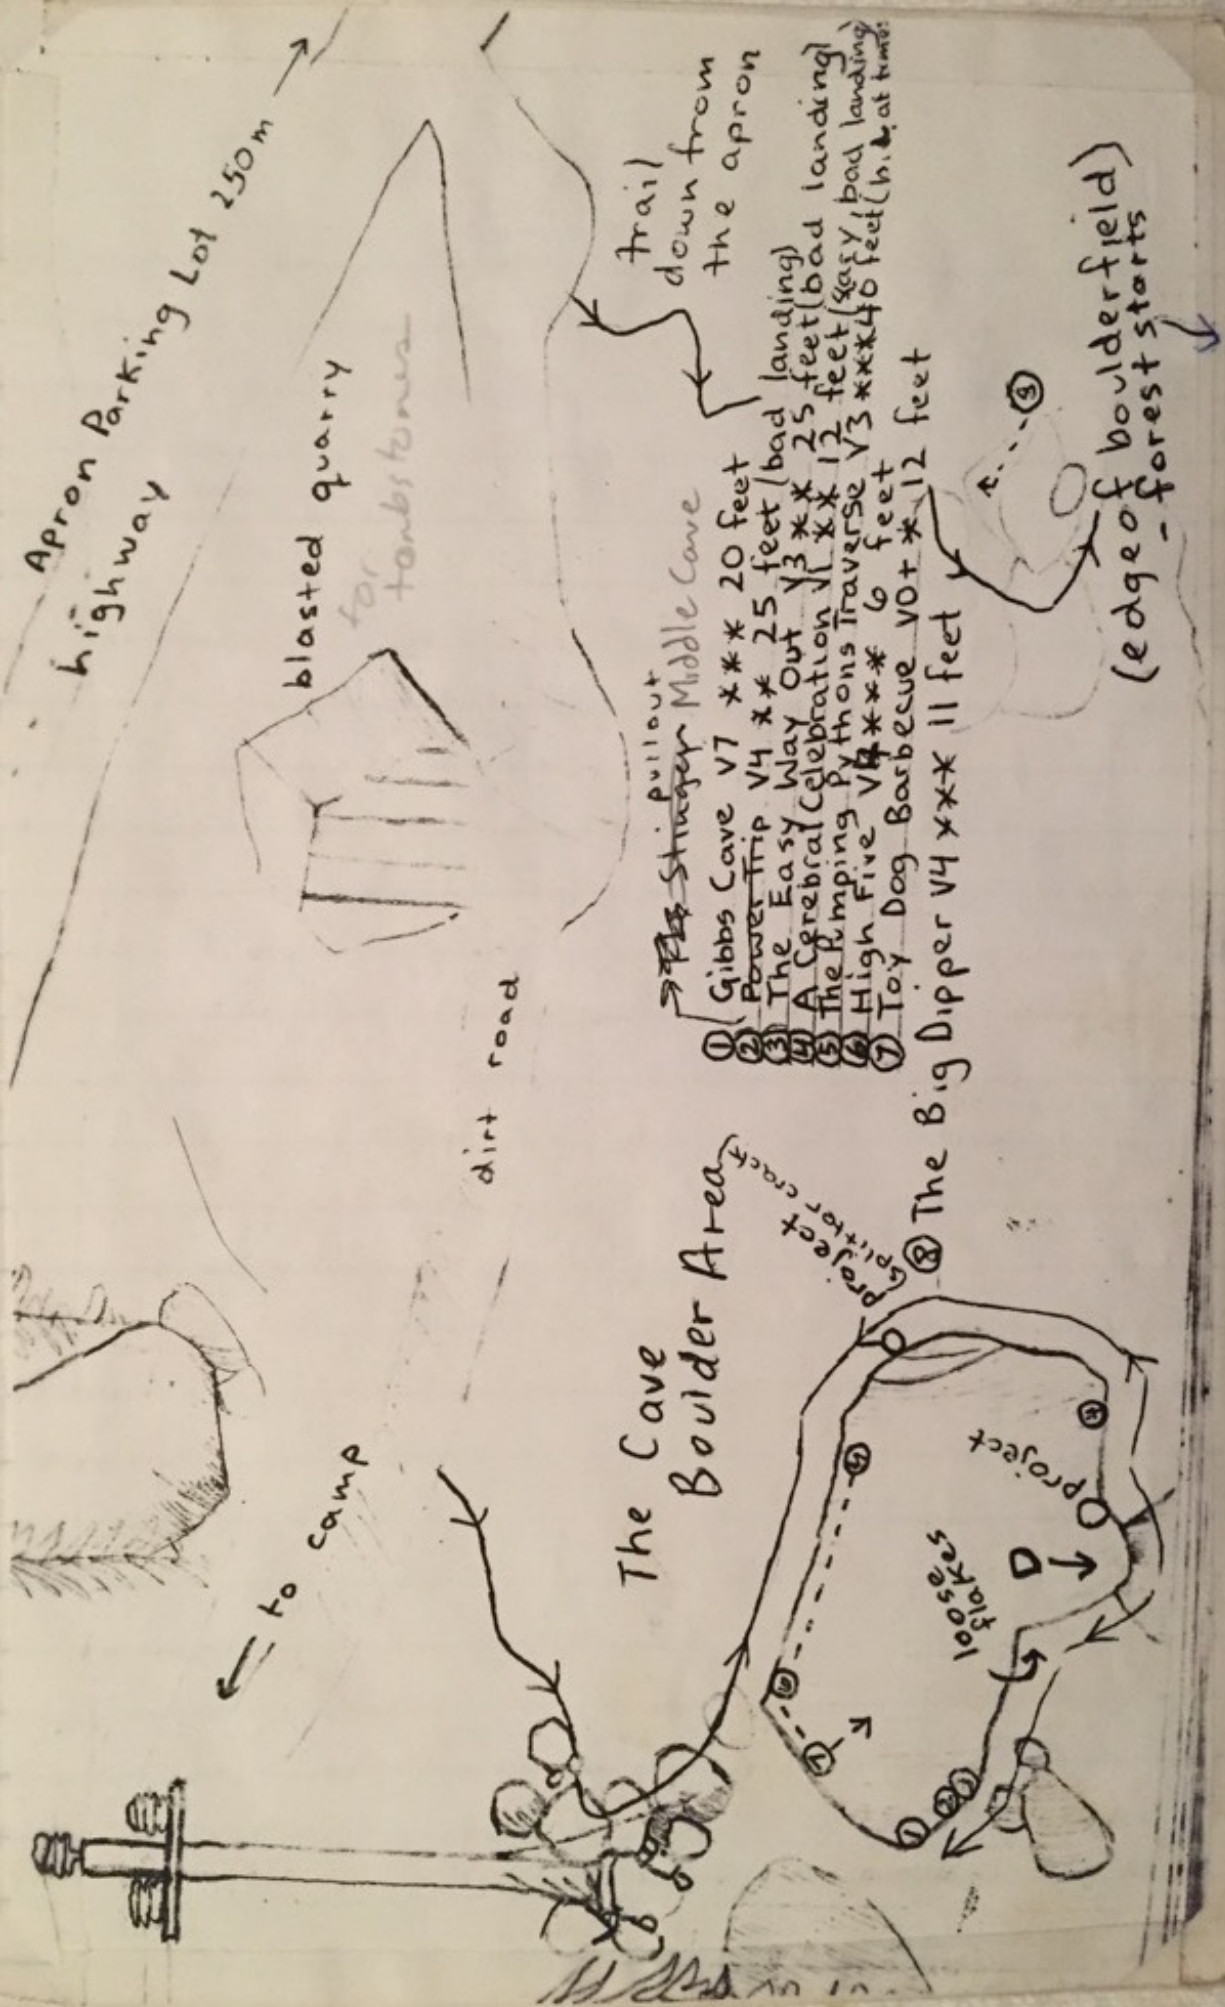 Apron Parking Lot 250m
highway
blasted quarry
for
tombstones
trail
down from
the apron
dirt road
to camp
The Cave
Boulder Area
pullout
Stinger Middle Cave
① Gibbs Cave V7 *** 20 feet
② Power Trip V4 ** 25 feet (bad landing)
③ The Easy Way Out V3 ** 25 feet (bad landing)
④ A Cerebral Celebration V1 ** 12 feet (easy, bad landing)
⑤ The Pumping Pythons Traverse V3 *** 40 feet (b.l. at times)
⑥ High Five V4 *** 6 feet
⑦ Toy Dog Barbecue V0+ * 12 feet
⑧ The Big Dipper V4 *** 11 feet
project
(splitter crack)
8
(edge of boulderfield)
- forest starts
5
4
project
loose
flakes
D
6
7
1
2
3